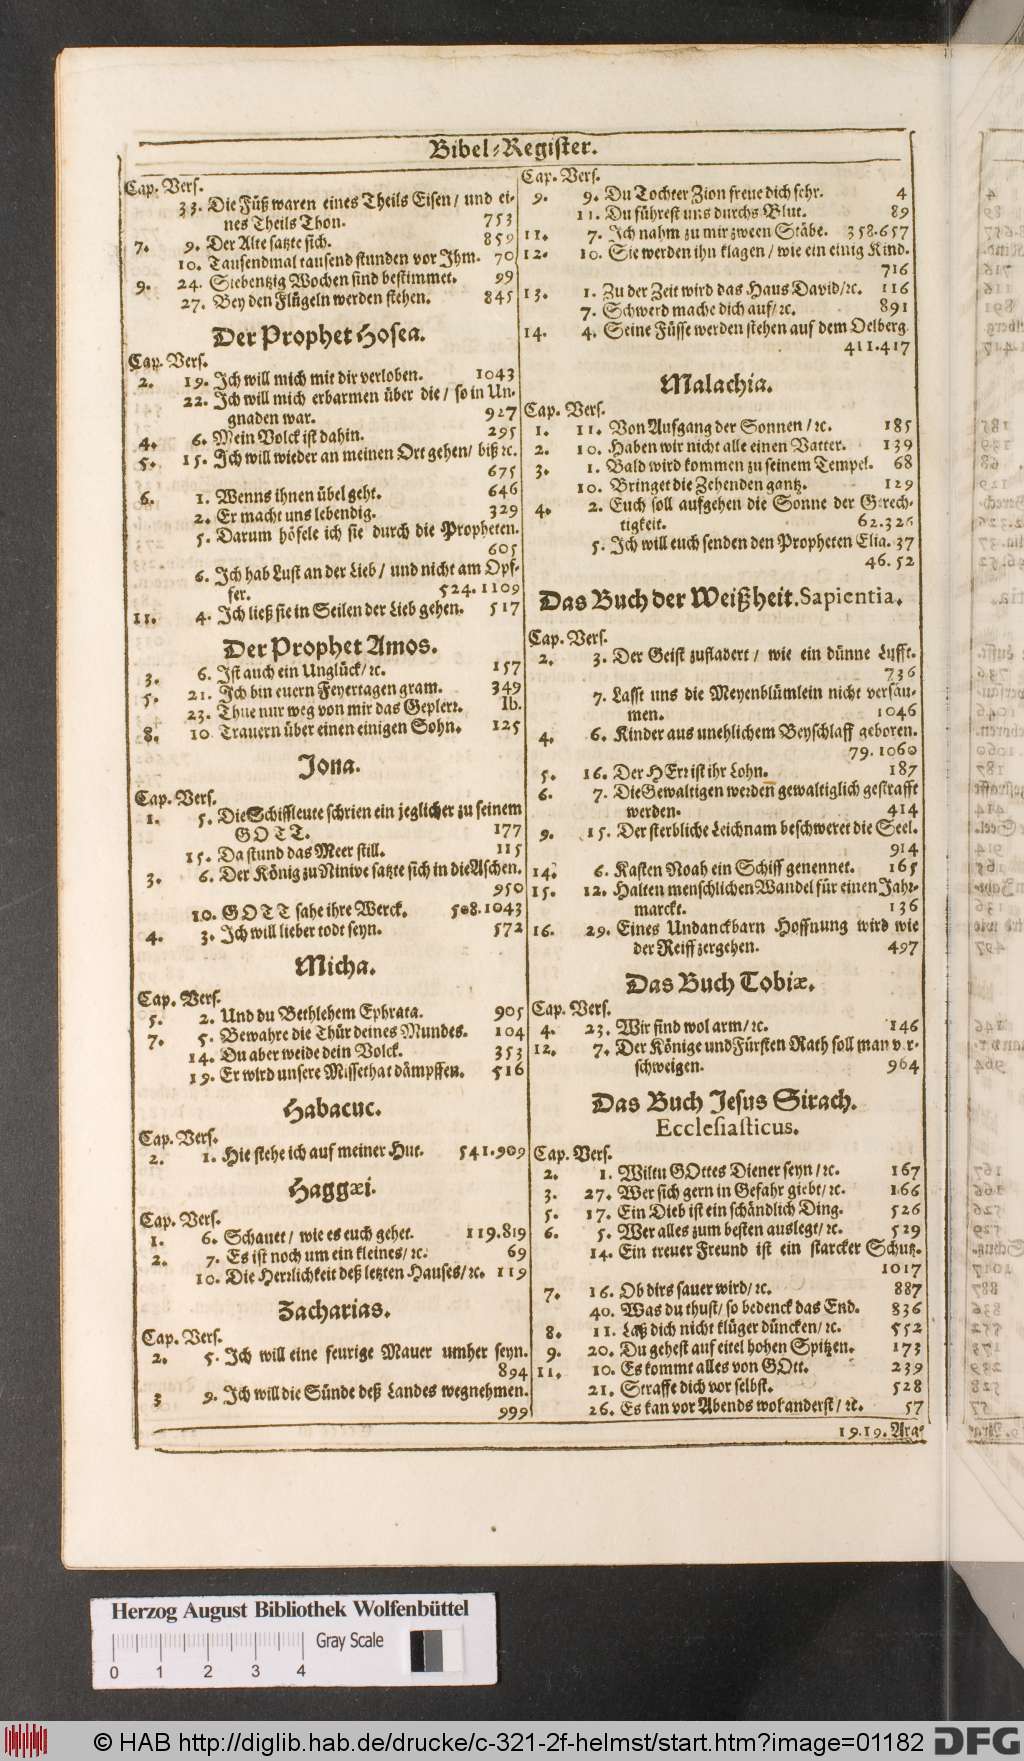 Bibel-Register.
Cap. Vers.
33. Die Füß waren eines Theils Eisen/ und ei-
nes Theils Thon. 753
7. 9. Der Alte satzte sich. 859
10. Tausendmal tausend stunden vor Ihm. 70
9. 24. Siebentzig Wochen sind bestimmet. 99
27. Bey den Flügeln werden stehen. 845
Der Prophet Hosea.
Cap. Vers.
2. 19. Ich will mich mit dir verloben. 1043
22. Ich will mich erbarmen über die/ so in Un-
gnaden war. 927
4. 6. Mein Volck ist dahin. 295
5. 15. Ich will wieder an meinen Ort gehen/ biß ꝛc.
675
6. 1. Wenns ihnen übel geht. 646
2. Er macht uns lebendig. 329
5. Darum höfele ich sie durch die Propheten.
605
6. Ich hab Lust an der Lieb/ und nicht am Opf-
fer. 524.1109
11. 4. Ich ließ sie in Seilen der Lieb gehen. 517
Der Prophet Amos.
3. 6. Ist auch ein Unglück/ꝛc. 157
5. 21. Ich bin euern Feyertagen gram. 349
23. Thue nur weg von mir das Geplerr. Ib.
8. 10 Trauern über einen einigen Sohn. 125
Jona.
Cap. Vers.
1. 5. Die Schiffleute schrien ein jeglicher zu seinem
GOTT. 177
15. Da stund das Meer still. 115
3. 6. Der König zu Ninive satzte sich in die Aschen.
950
10. GOTT sahe ihre Werck. 508.1043
4. 3. Ich will lieber todt seyn. 572
Micha.
Cap. Vers.
5. 2. Und du Bethlehem Ephrata. 905
7. 5. Bewahre die Thür deines Mundes. 104
14. Du aber weide dein Volck. 353
19. Er wird unsere Missethat dämpffen. 516
Habacuc.
Cap. Vers.
2. 1. Hie stehe ich auf meiner Hut. 541.909
Haggæi.
Cap. Vers.
1. 6. Schauet/ wie es euch gehet. 119.819
2. 7. Es ist noch um ein kleines/ꝛc. 69
10. Die Herrlichkeit deß letzten Hauses/ꝛc. 119
Zacharias.
Cap. Vers.
2. 5. Ich will eine feurige Mauer umher seyn.
894
3 9. Ich will die Sünde deß Landes wegnehmen.
999
Cap. Vers.
9. 9. Du Tochter Zion freue dich sehr. 4
11. Du führest uns durchs Blut. 89
11. 7. Ich nahm zu mir zween Stäbe. 358.657
12. 10. Sie werden ihn klagen/ wie ein einig Kind.
716
13. 1. Zu der Zeit wird das Haus David/ꝛc. 116
7. Schwerd mache dich auf/ꝛc. 891
14. 4. Seine Füsse werden stehen auf dem Oelberg.
411.417
Malachia.
Cap. Vers.
1. 11. Von Aufgang der Sonnen/ꝛc. 185
2. 10. Haben wir nicht alle einen Vatter. 139
3. 1. Bald wird kommen zu seinem Tempel. 68
10. Bringet die Zehenden gantz. 129
4. 2. Euch soll aufgehen die Sonne der Gerech-
tigkeit. 62.326
5. Ich will euch senden den Propheten Elia. 37
46.52
Das Buch der Weißheit. Sapientia.
Cap. Vers.
2. 3. Der Geist zufladert/ wie ein dünne Lufft.
736
7. Lasst uns die Meyenblümlein nicht versäu-
men. 1046
4. 6. Kinder aus unehlichem Beyschlaff geboren.
79.1060
5. 16. Der HErr ist ihr Lohn. 187
6. 7. Die Gewaltigen werden gewaltiglich gestrafft
werden. 414
9. 15. Der sterbliche Leichnam beschweret die Seel.
914
14. 6. Kasten Noah ein Schiff genennet. 165
15. 12. Halten menschlichen Wandel für einen Jahr-
marckt. 136
16. 29. Eines Undanckbarn Hoffnung wird wie
der Reiff zergehen. 497
Das Buch Tobiæ.
Cap. Vers.
4. 23. Wir sind wol arm/ꝛc. 146
12. 7. Der Könige und Fürsten Rath soll man ver-
schweigen. 964
Das Buch Jesus Sirach.
Ecclesiasticus.
Cap. Vers.
2. 1. Wiltu GOttes Diener seyn/ꝛc. 167
3. 27. Wer sich gern in Gefahr giebt/ꝛc. 166
5. 17. Ein Dieb ist ein schändlich Ding. 526
6. 5. Wer alles zum besten auslegt/ꝛc. 529
14. Ein treuer Freund ist ein starcker Schutz.
1017
7. 16. Ob dirs sauer wird/ꝛc. 887
40. Was du thust/ so bedenck das End. 836
8. 11. Laß dich nicht klüger düncken/ꝛc. 552
9. 20. Du gehest auf eitel hohen Spitzen. 173
11. 10. Es kommt alles von GOtt. 239
21. Straffe dich vor selbst. 528
26. Es kan vor Abends wol anderst/ꝛc. 57
19.19. Arg-
Herzog August Bibliothek Wolfenbüttel
Gray Scale
0 1 2 3 4
© HAB http://diglib.hab.de/drucke/c-321-2f-helmst/start.htm?image=01182 DFG